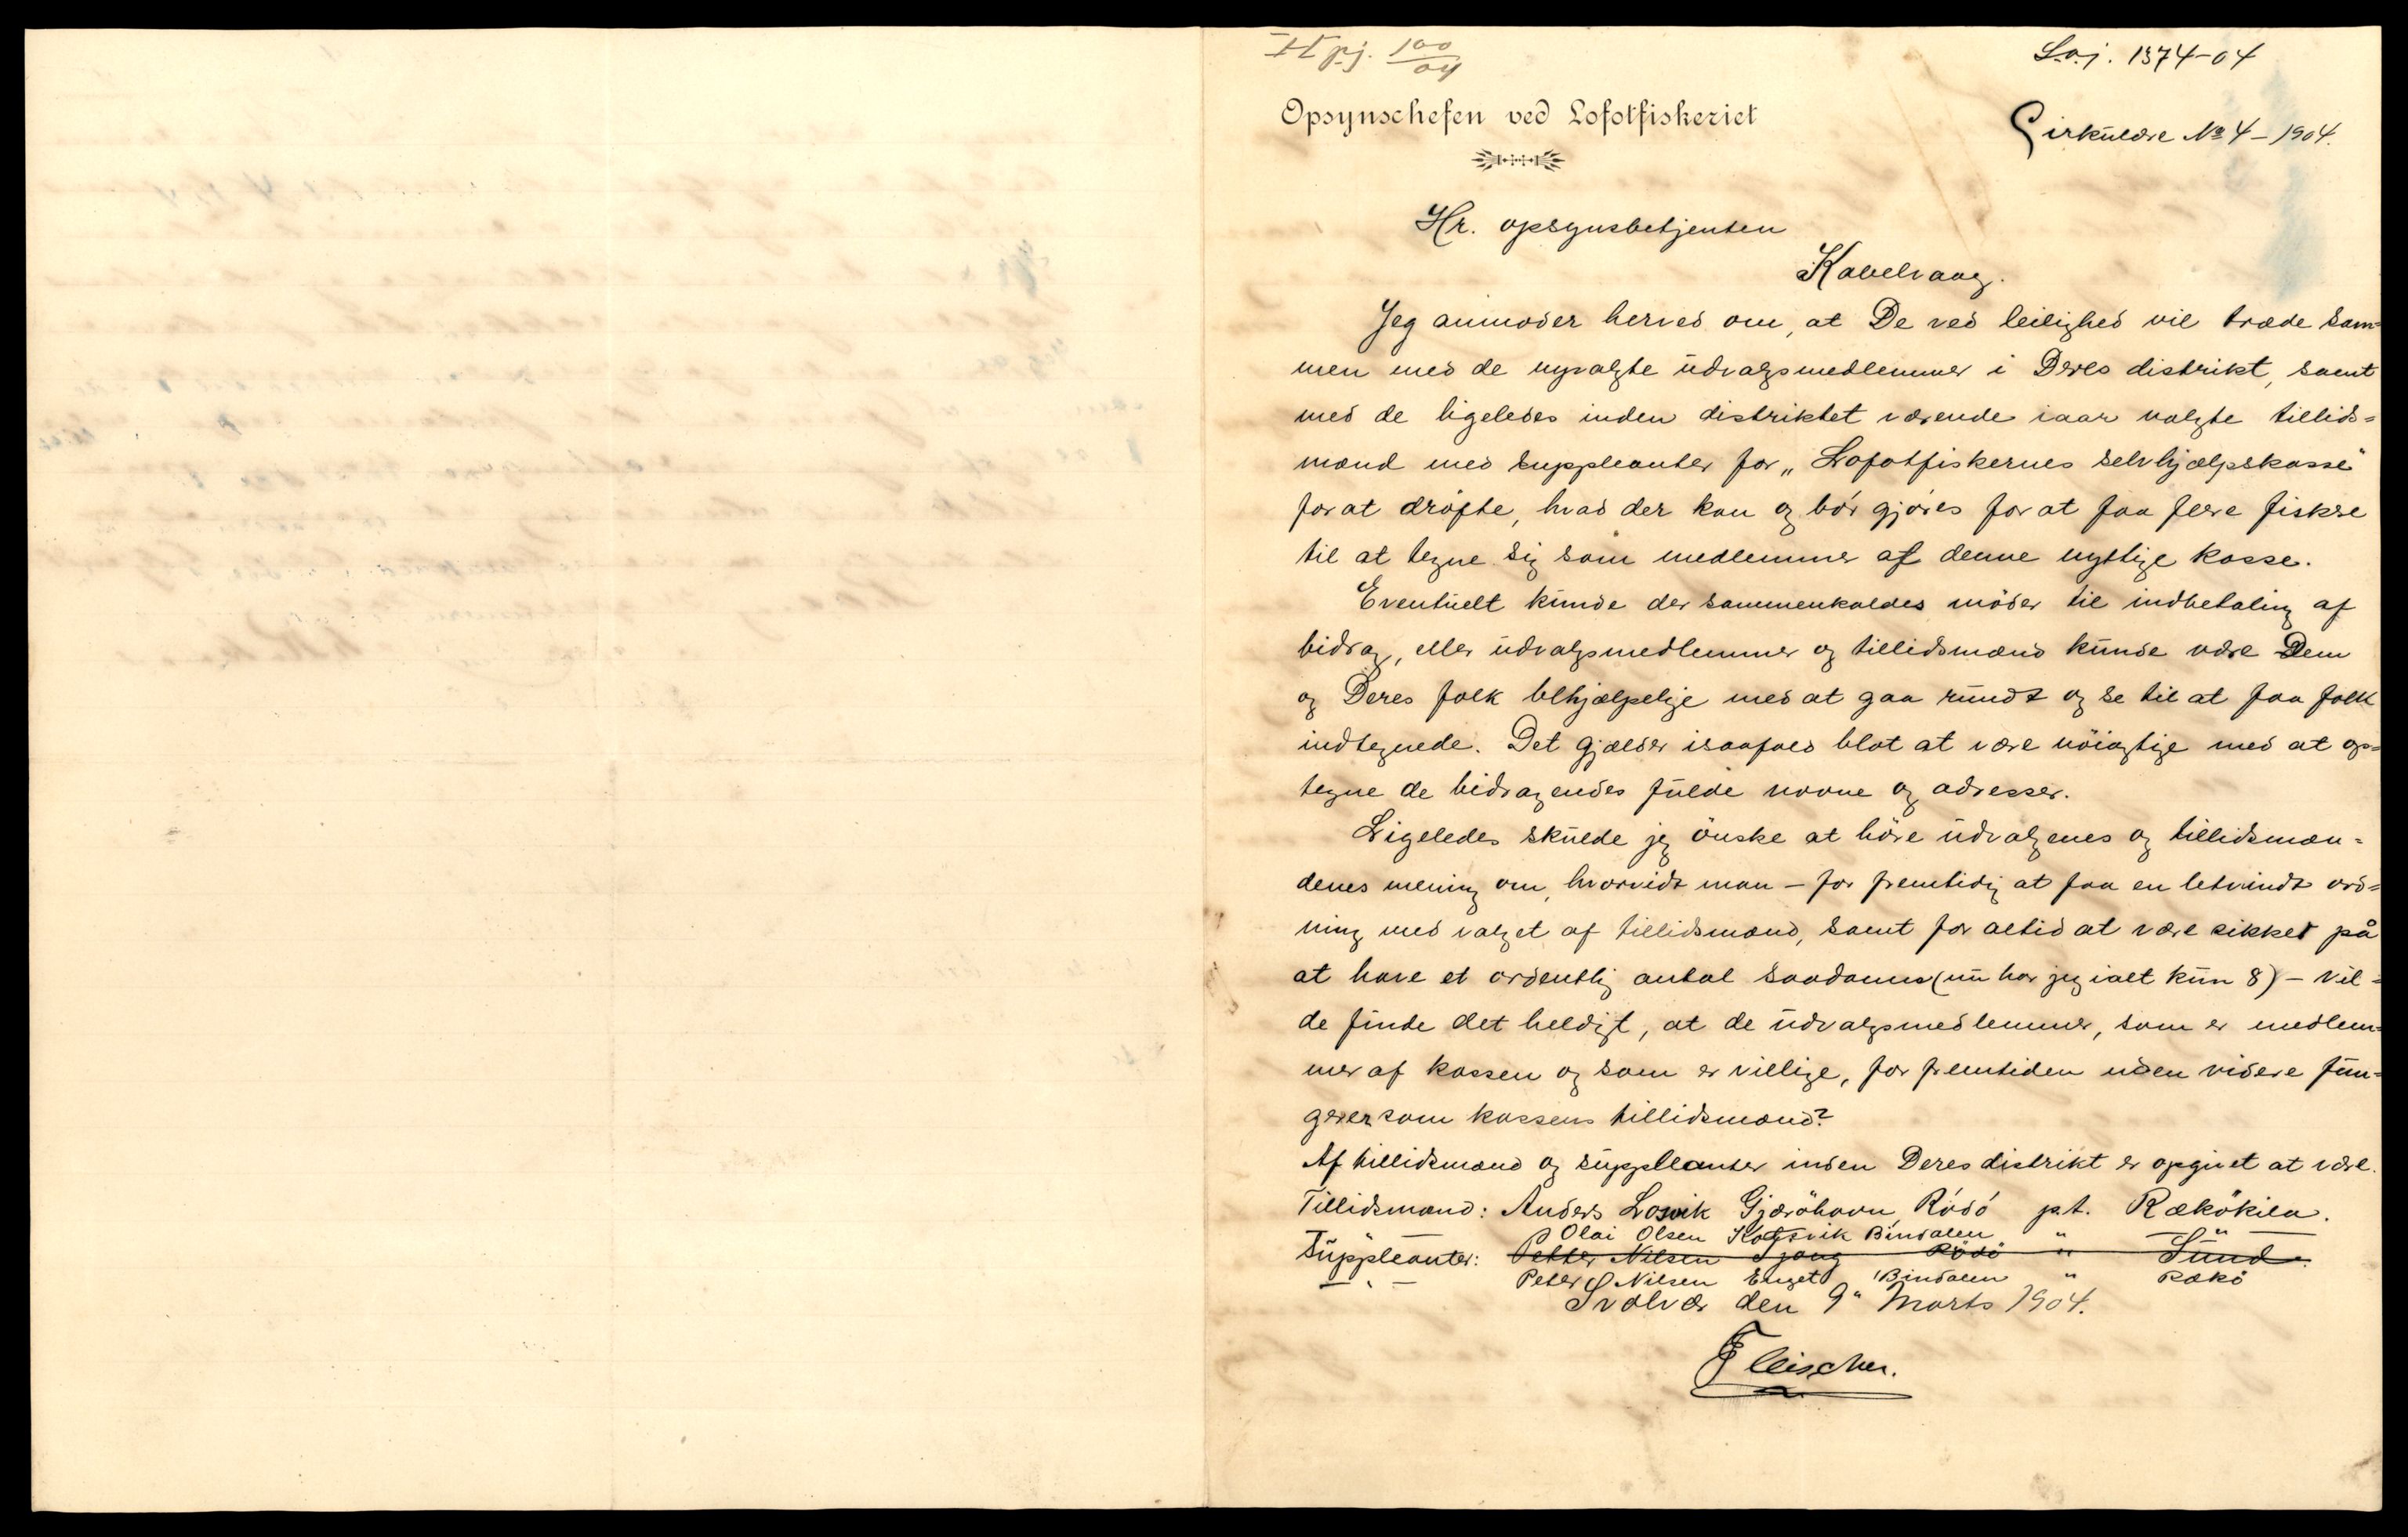 II pj. 100/04
L.o.j. 1374-04
Opsynschefen ved Lofotfiskeriet
Cirkulære No 4 - 1904.
Hr. opsynsbetjenten
Kabelvaag.
Jeg anmoder herved om, at De ved leilighed vil træde sam=
men med de nyvalgte udvalgsmedlemmer i Deres distrikt, samt
med de ligeledes inden distriktet værende iaar valgte tillids=
mænd med suppleanter for "Lofotfiskernes selvhjælpskasse"
for at drøfte, hvad der kan og bør gjøres for at faa flere fiskere
til at tegne sig som medlemmer af denne nyttige kasse.
Eventuelt kunde der sammenkaldes møder til indbetaling af
bidrag, eller udvalgsmedlemmer og tillidsmænd kunde være Dem
og Deres folk behjælpelige med at gaa rundt og se til at faa folk
indtegnede. Det gjælder isaafald blot at være nöiagtige med at op=
tegne de bidragendes fulde navne og adresser.
Ligeledes skulde jeg önske at höre udvalgenes og tillidsmæn=
denes mening om, hvorvidt man - for fremtidig at faa en letvindt ord=
ning med valget af tillidsmænd, samt for altid at være sikket på
at have et ordentlig antal saadanne (nu har jeg ialt kun 8) - vil=
de finde det heldigt, at de udvalgsmedlemmer, som er medlem=
mer af kassen og som er villige, for fremtiden uden videre fun=
gerer som kassens tillidsmænd?
Af tillidsmænd og suppleanter inden Deres distrikt er opgivet at være.
Tillidsmænd: Anders Losvik Gjæröhavn, Rödö p.t. Rækökila.
Olai Olsen Kalsvik Bindalen " "
Suppleanter: Petter Nilsen Tjong Rödö " Sund.
- " - Peter Nilsen Enget Bindalen " Rækö
Svolvær den 9" Marts 1904.
Fleischer.